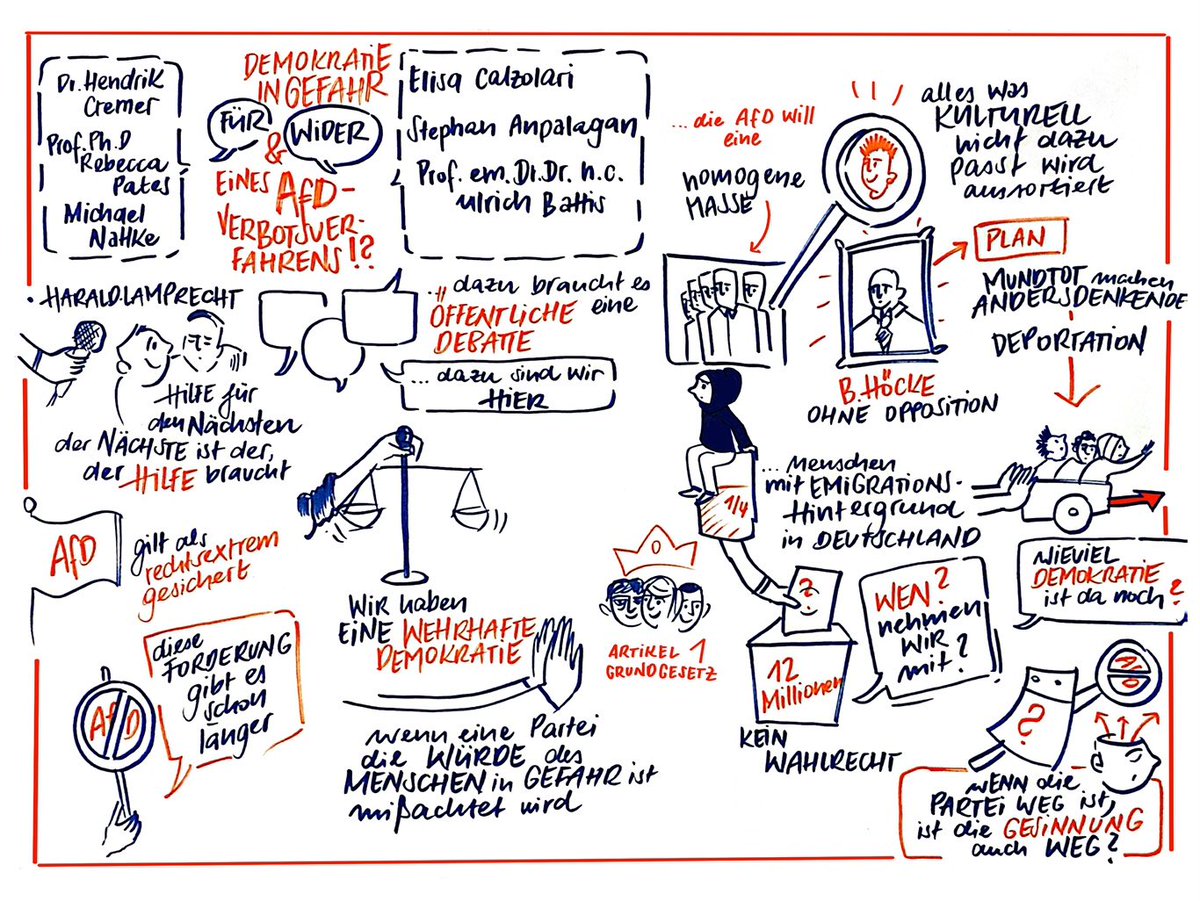 Dr. Hendrik
Cremer
Prof. Ph.D
Rebecca
Pates
Michael
Nattke
DEMOKRATIE
IN GEFAHR
FÜR
&
WIDER
EINES AfD-
VERBOTSVER-
FAHRENS!?
Elisa Calzolari
Stephan Anpalagan
Prof. em. Dr. Dr. h.c.
Ulrich Battis
• HARALD LAMPRECHT
HILFE für
den Nächsten
der NÄCHSTE ist der,
der HILFE braucht
... dazu braucht es
eine
ÖFFENTLICHE
DEBATTE
... dazu sind wir
HIER
... die AfD will
eine
homogene
MASSE
alles was
KULTURELL
nicht dazu
passt wird
aussortiert
B. HÖCKE
OHNE OPPOSITION
PLAN
MUNDTOT machen
ANDERSDENKENDE
DEPORTATION
AfD
gilt als
rechtsextrem
gesichert
diese
FORDERUNG
gibt es
schon
länger
AfD
Wir haben
EINE WEHRHAFTE
DEMOKRATIE
wenn eine Partei
die WÜRDE des
MENSCHEN in GEFAHR ist
mißachtet wird
ARTIKEL 1
GRUNDGESETZ
1/4
... menschen
mit EMIGRATIONS-
Hintergrund
in DEUTSCHLAND
12
Millionen
KEIN
WAHLRECHT
WEN?
nehmen
WIR
mit?
WIEVIEL
DEMOKRATIE
ist da noch?
?
AfD
WENN die
PARTEI WEG ist,
ist die GESINNUNG
auch WEG?